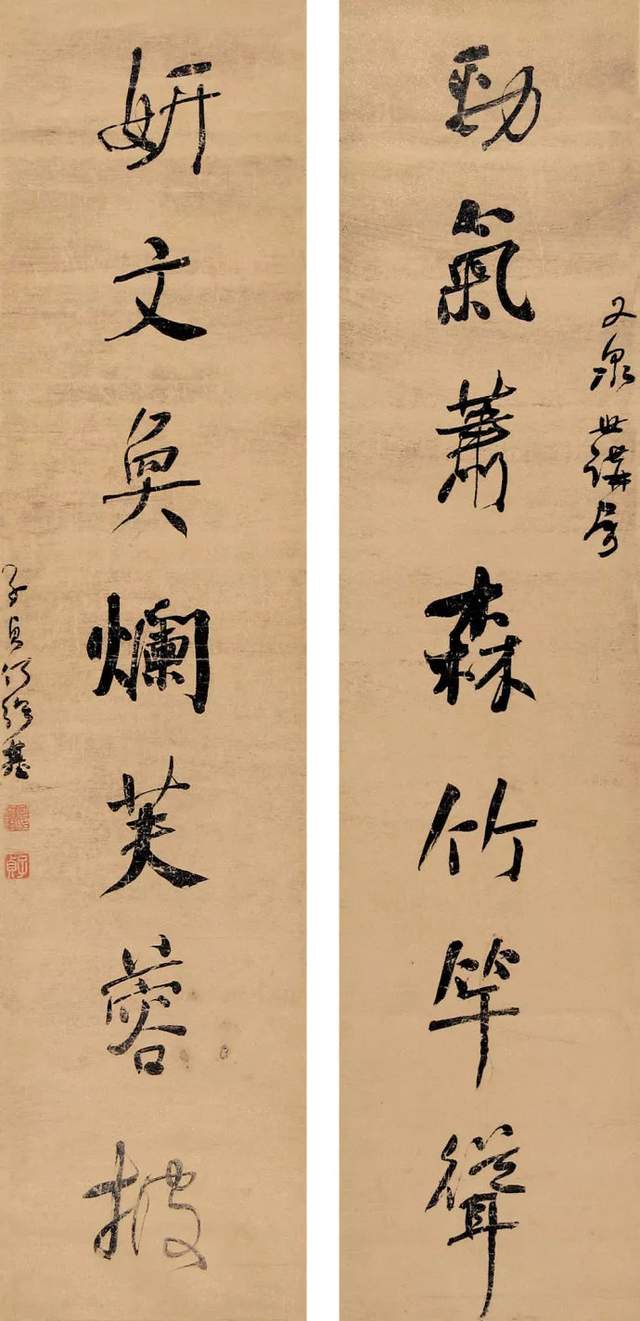 又泉世講屬
勁氣蕭森竹竿聳
妍文奐爛芙蓉披
子貞何紹基
子貞